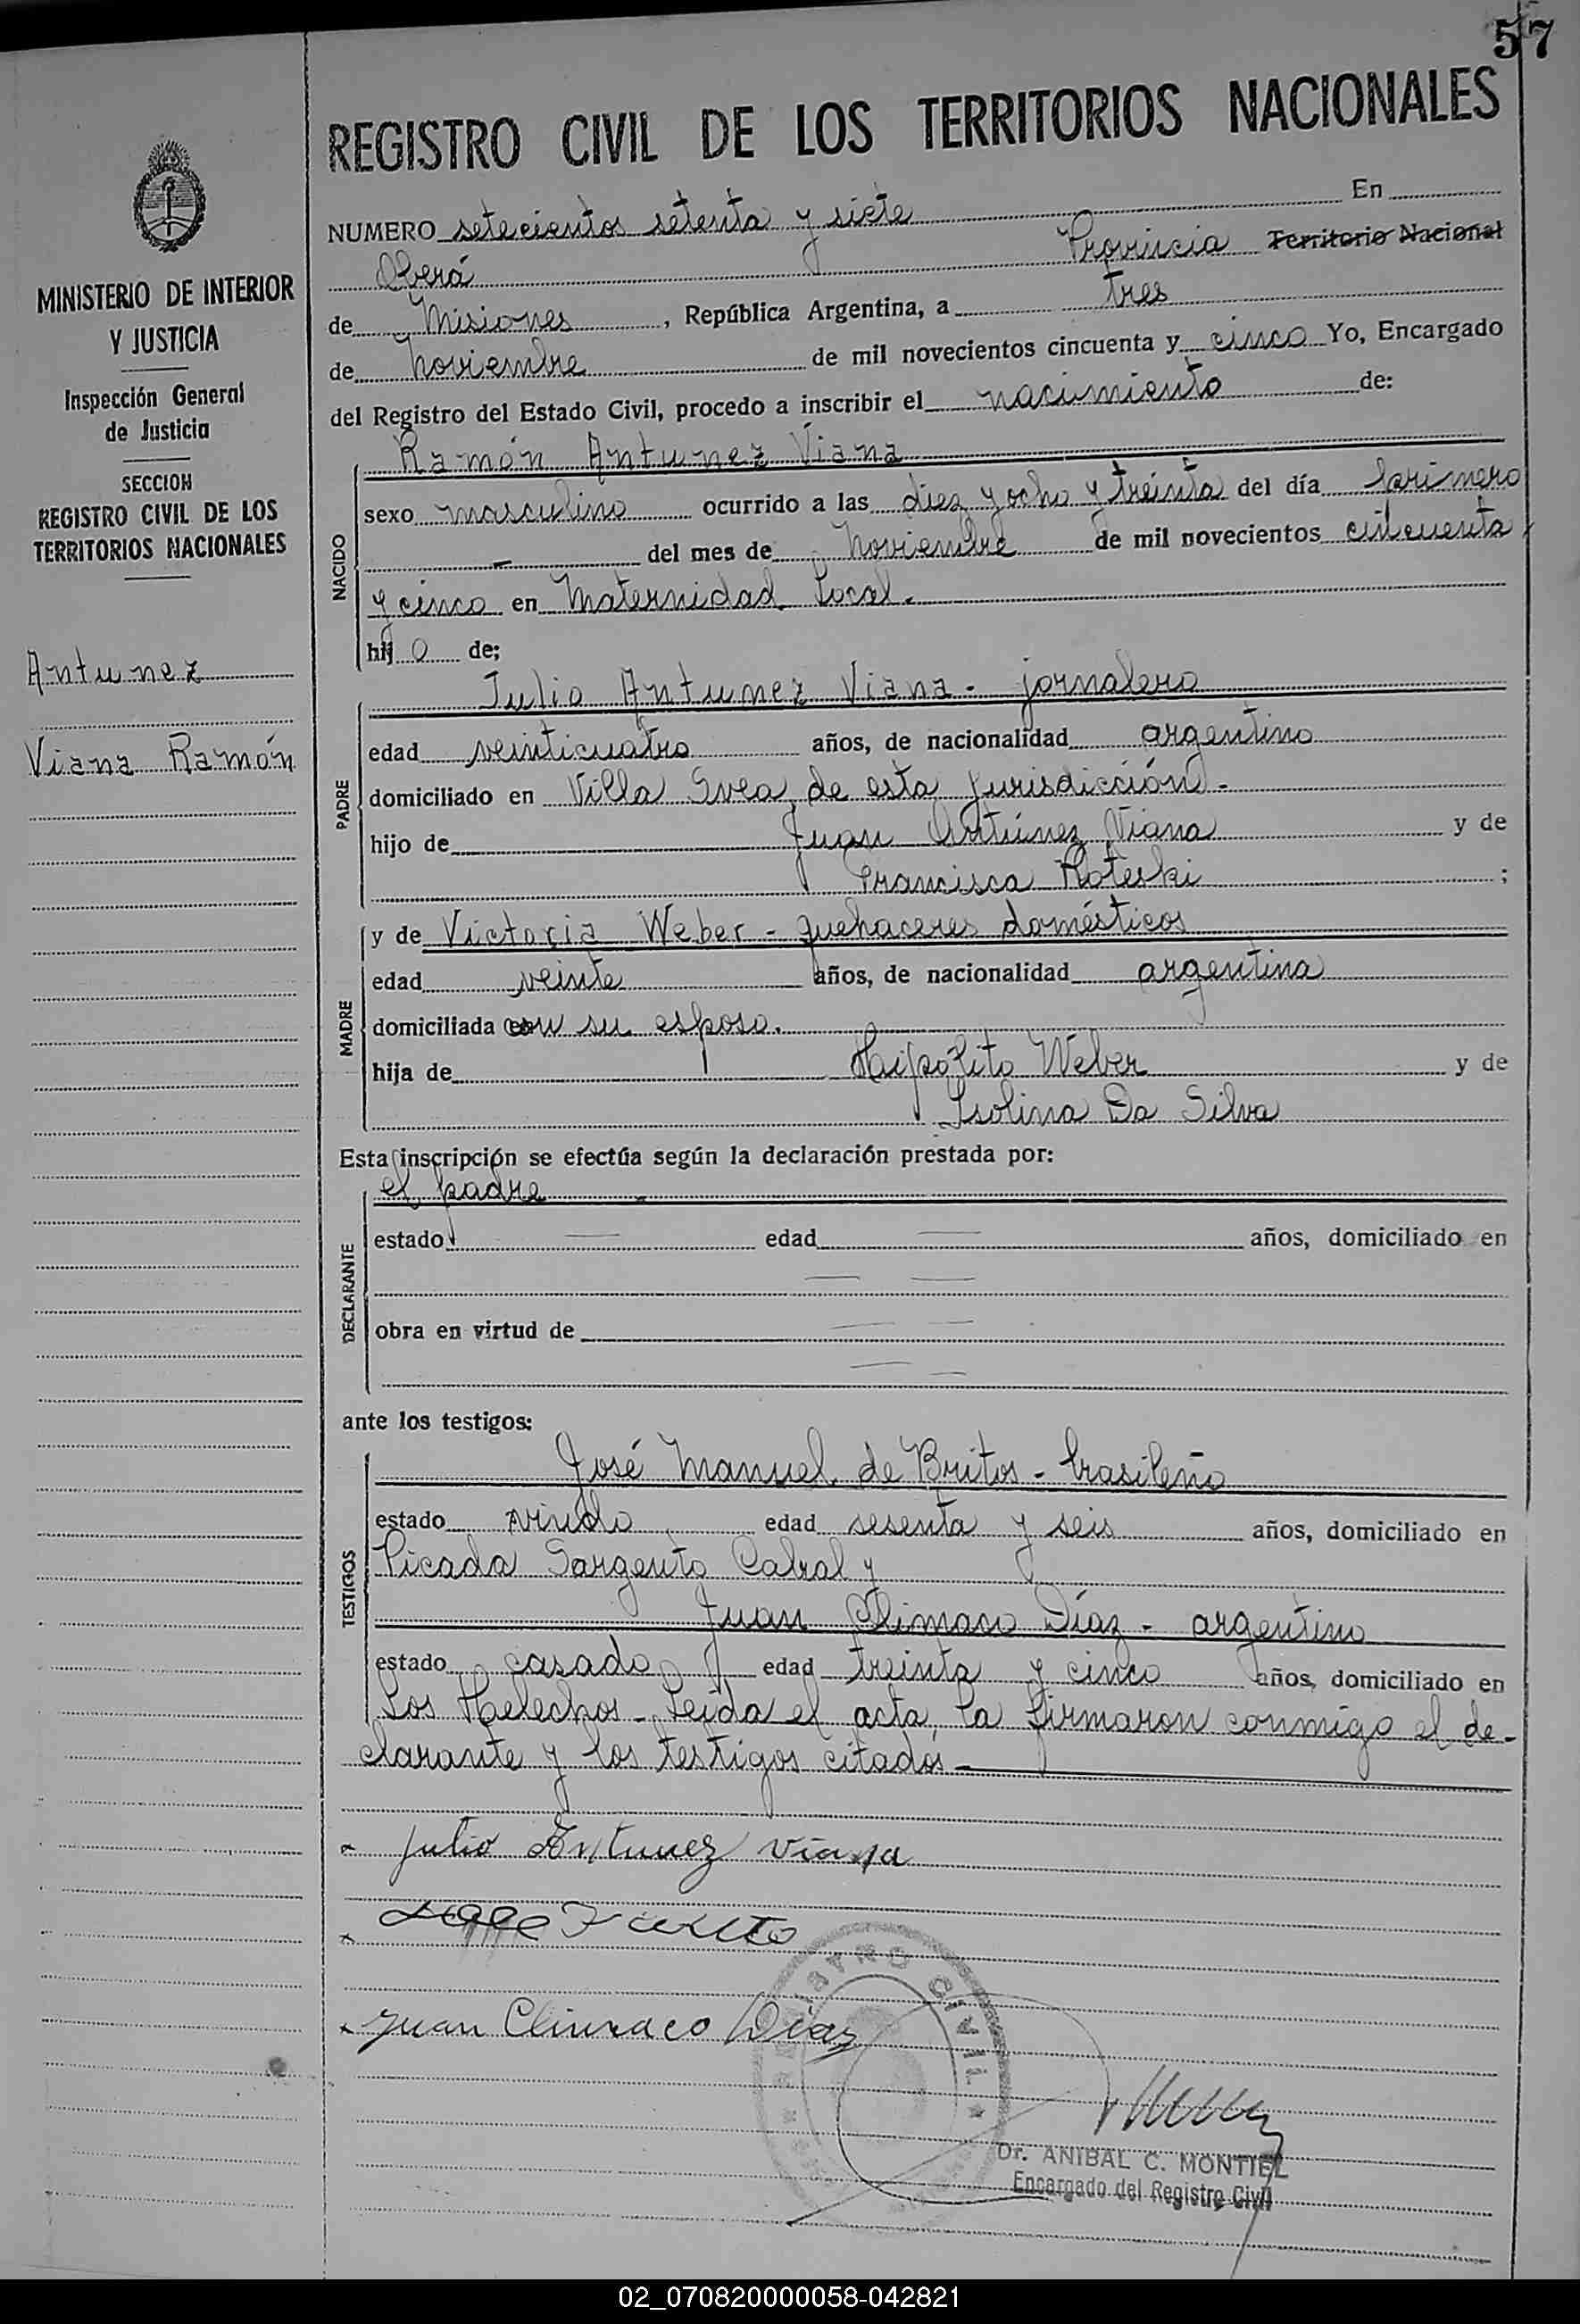 57
REGISTRO CIVIL DE LOS TERRITORIOS NACIONALES
MINISTERIO DE INTERIOR
Y JUSTICIA
Inspección General
de Justicia
SECCION
REGISTRO CIVIL DE LOS
TERRITORIOS NACIONALES
Antunez
Viana Ramón
NUMERO setecientos setenta y siete En
Oberá Provincia Territorio Nacional
de Misiones, República Argentina, a tres
de Noviembre de mil novecientos cincuenta y cinco Yo, Encargado
del Registro del Estado Civil, procedo a inscribir el nacimiento de:
NACIDO
Ramón Antunez Viana
sexo masculino ocurrido a las diez y ocho y treinta del día primero
- del mes de Noviembre de mil novecientos cincuenta
y cinco en Maternidad Local.
hijo de;
PADRE
Julio Antunez Viana - jornalero
edad veinticuatro años, de nacionalidad argentino
domiciliado en Villa Svea, de esta jurisdicción -
hijo de Juan Antúnez Viana y de
Francisca ;
MADRE
y de Victoria Weber - quehaceres domésticos
edad veinte años, de nacionalidad argentina
domiciliada con su esposo.
hija de Hipólito Weber y de
Isolina Da Silva
Esta inscripción se efectúa según la declaración prestada por:
DECLARANTE
el padre
estado — edad — años, domiciliado en
— —
obra en virtud de — —
— —
ante los testigos:
TESTIGOS
José Manuel de Britos - brasileño
estado viudo, edad sesenta y seis años, domiciliado en
Picada Sargento Cabral y
Juan Climaco Díaz - argentino
estado casado edad treinta y cinco años, domiciliado en
Los Helechos - Leída el acta, la firmaron conmigo el de-
clarante y los testigos citados -
Julio Antunez Viana
Juan Climaco Diaz
REGISTRO CIVIL
Dr. ANIBAL C. MONTIEL
Encargado del Registro Civil
02_070820000058-042821